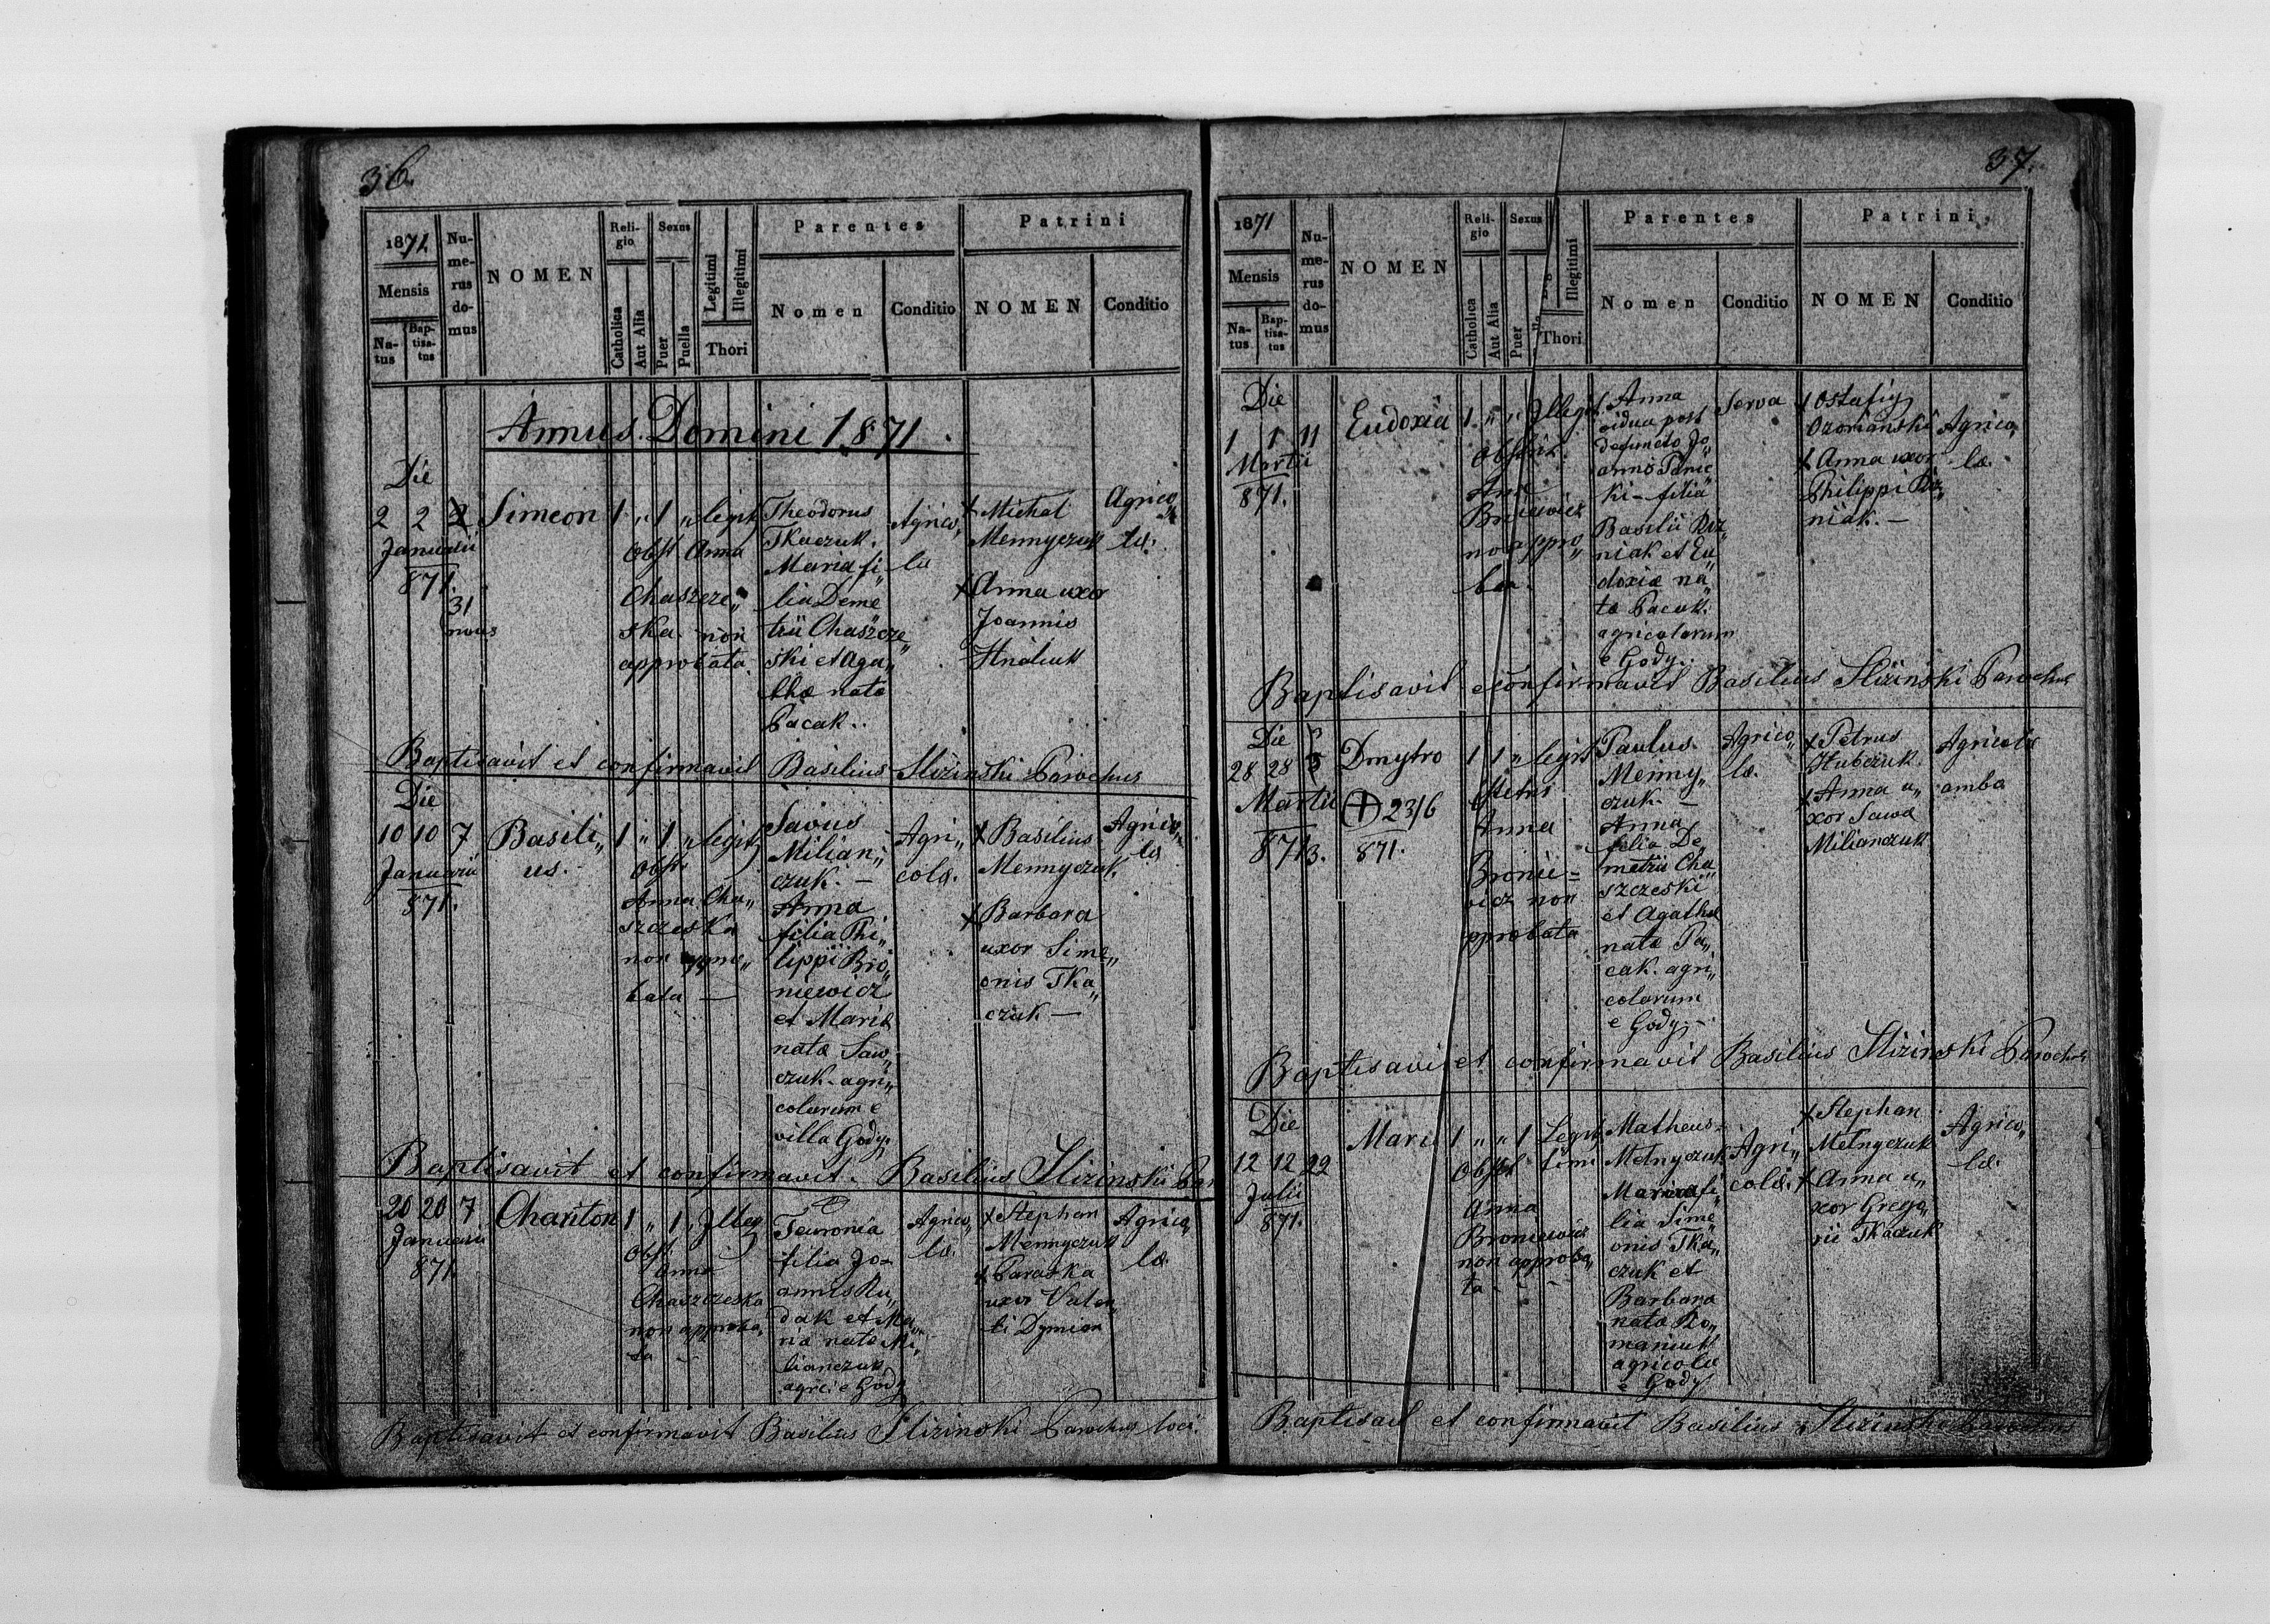 36.
1871.
Mensis
Na-
tus
Bap-
tisa-
tus
Nu-
me-
rus
do-
mus
NOMEN
Reli-
gio
Catholica
Aut Alia
Sexus
Puer
Puella
Legitimi
Illegitimi
Thori
Parentes
Nomen
Conditio
Patrini
NOMEN
Conditio
Annus Domini 1871.
Die
2 2 2
Januarii
871.
31
novus
Simeon
1 " 1 " legit
Obst Anna
Chaszcze„
ska non
approbata
Theodorus
Tkaczuk.
Maria fi„
lia Deme
trii Chaszcze„
ski et Aga„
thæ natæ
Pacak..
Agrico„
læ
+ Michal
Mennyczuk
+ Anna uxor
Joannis
Hnatiuk
Agrico„
læ.
Baptisavit et confirmavit Basilius Slizinski Parochus
Die
10 10 7
Januarii
871.
Basili„
us.
1 " 1 " legit
Obst
Anna Cha„
szczeska
non appro„
bata —
Savus
Milian„
czuk. —
Anna
filia Phi„
lippi Bro„
niewicz
et Mariæ
natæ Saw„
czuk - agri„
colarum e
villa Gody.
Agri„
colæ.
+ Basilius
Mennyczuk.
+ Barbara
uxor Sime„
onis Tka„
czuk —
Agrico„
læ
Baptisavit et confirmavit. Basilius Slizinski Par
20 20 7
Januarii
871.
Chariton
1 " 1 " Illeg
Obst
Anna
Chaszczeska
non approba„
ta -
Fevronia
filia Jo-
annis Ru„
dak et Ma„
riæ natæ Mi„
lianczuk
agric e Gody
Agrico„
læ.
+ Stephan
Mennyczuk
+ Paraska
uxor Valen„
ti Dymian
Agrico„
læ
Baptisavit et confirmavit Basilius Slizinski Parochus loci.
37.
1871
Mensis
Na-
tus
Bap-
tisa-
tus
Nu-
me-
rus
do-
mus
NOMEN
Reli-
gio
Catholica
Aut Alia
Sexus
Puer
Illegitimi
Thori
Parentes
Nomen
Conditio
Patrini,
NOMEN
Conditio
Die
1 1 11
Martii
871.
Eudoxia
1 " " Illegit.
Obstrix.
Anna
non appro„
ba.
Anna
vidua post
defuncto Jo„
anno
ki - filia
Basilii Roz„
niak et Eu„
doxiæ na„
tæ Pacak.
agricolarum
e Gody.
Serva
+ Ostafiy
+ Anna uxor
Philippi Roz„
niak. —
Agrico„
læ.
Baptisavit et confirmavit Basilius Slizinski Parochus
Die
28 28 3
Martii
871 3.
Dmytro
⊕ 23/6
871.
1 1 " legit
Anna
Bronie=
vicz non
pprobata
Paulus.
Menny„
czuk. —
Anna
filia De„
metrii Cha„
szczeski
et Agathæ
natæ Pa„
cak. agri„
colarum
e Gody.-
Agrico„
læ.
+ Petrus
Hubczuk.
+ Anna u„
xor Sawa
Milianczuk
Agricolæ
ambo
Baptisavit et confirmavit Basilius Slizinski Parochus
Die
12 12 22
Julii
871.
Maria
1 " " 1 Legit„
timi
Obst
Anna
Broniewicz
non approba„
ta -
Matheus
Melnyczuk
Maria fi„
lia Sime„
onis Tka„
czuk et
Barbara
natæ Ro„
maniuk
agricolæ
e Gody
Agri„
colæ.
+ Stephan
Melnyczuk
+ Anna u„
xor Grego„
rii Tkaczuk
Agrico„
læ.
Baptisavit et confirmavit Basilius Slizinski Parochus